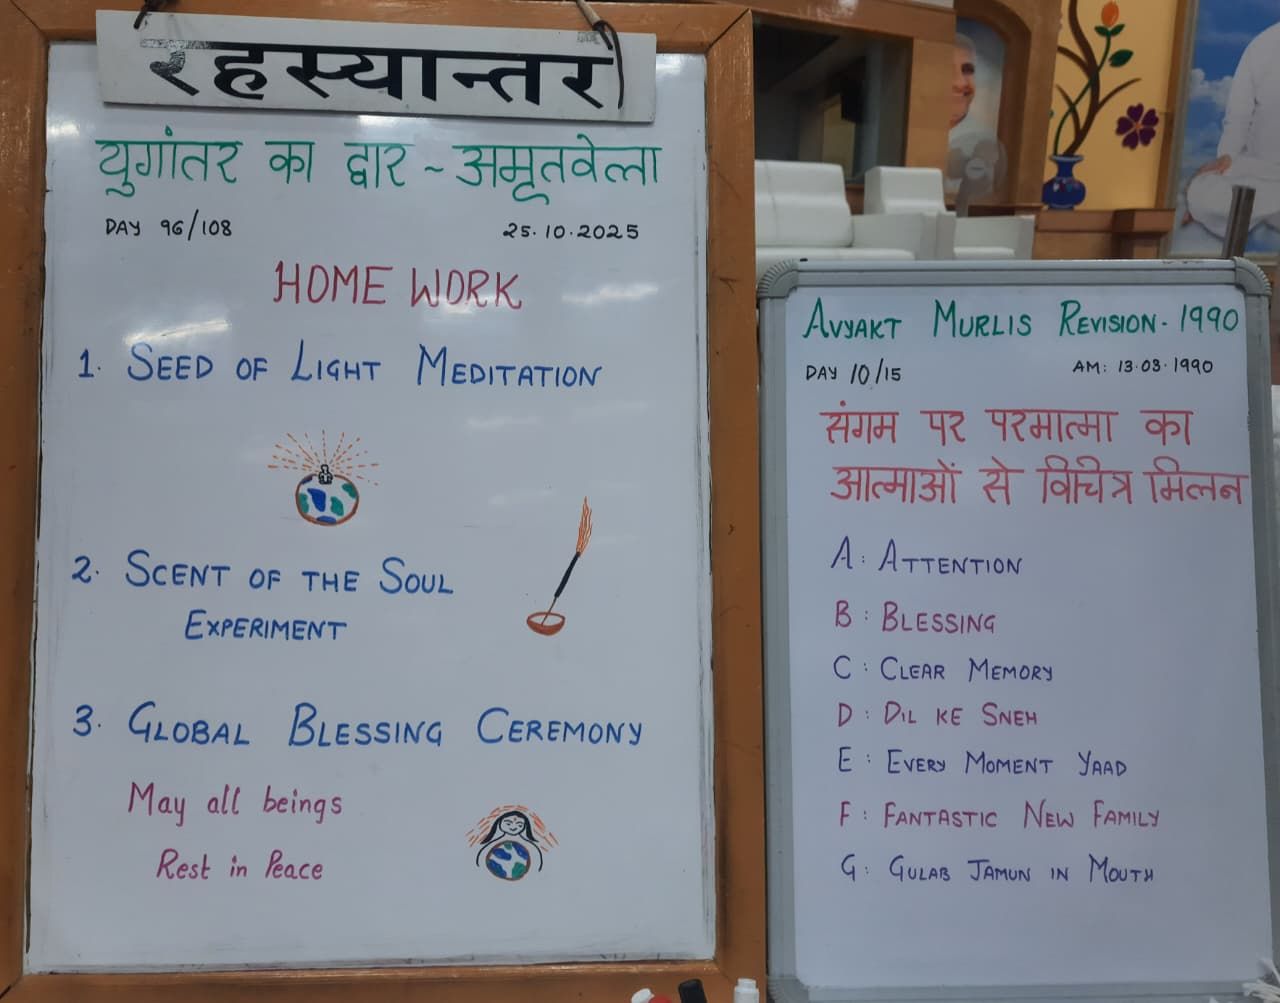 रहस्यान्तर
युगांतर का द्वार ~ अमृतवेला
DAY 96/108
25.10.2025
HOME WORK
1. SEED OF LIGHT MEDITATION
2. SCENT OF THE SOUL
EXPERIMENT
3. GLOBAL BLESSING CEREMONY
May all beings
Rest in Peace
AVYAKT MURLIS REVISION - 1990
DAY 10/15
AM: 13.03.1990
संगम पर परमात्मा का
आत्माओं से विचित्र मिलन
A: ATTENTION
B: BLESSING
C: CLEAR MEMORY
D: DIL KE SNEH
E: EVERY MOMENT YAAD
F: FANTASTIC NEW FAMILY
G: GULAB JAMUN IN MOUTH